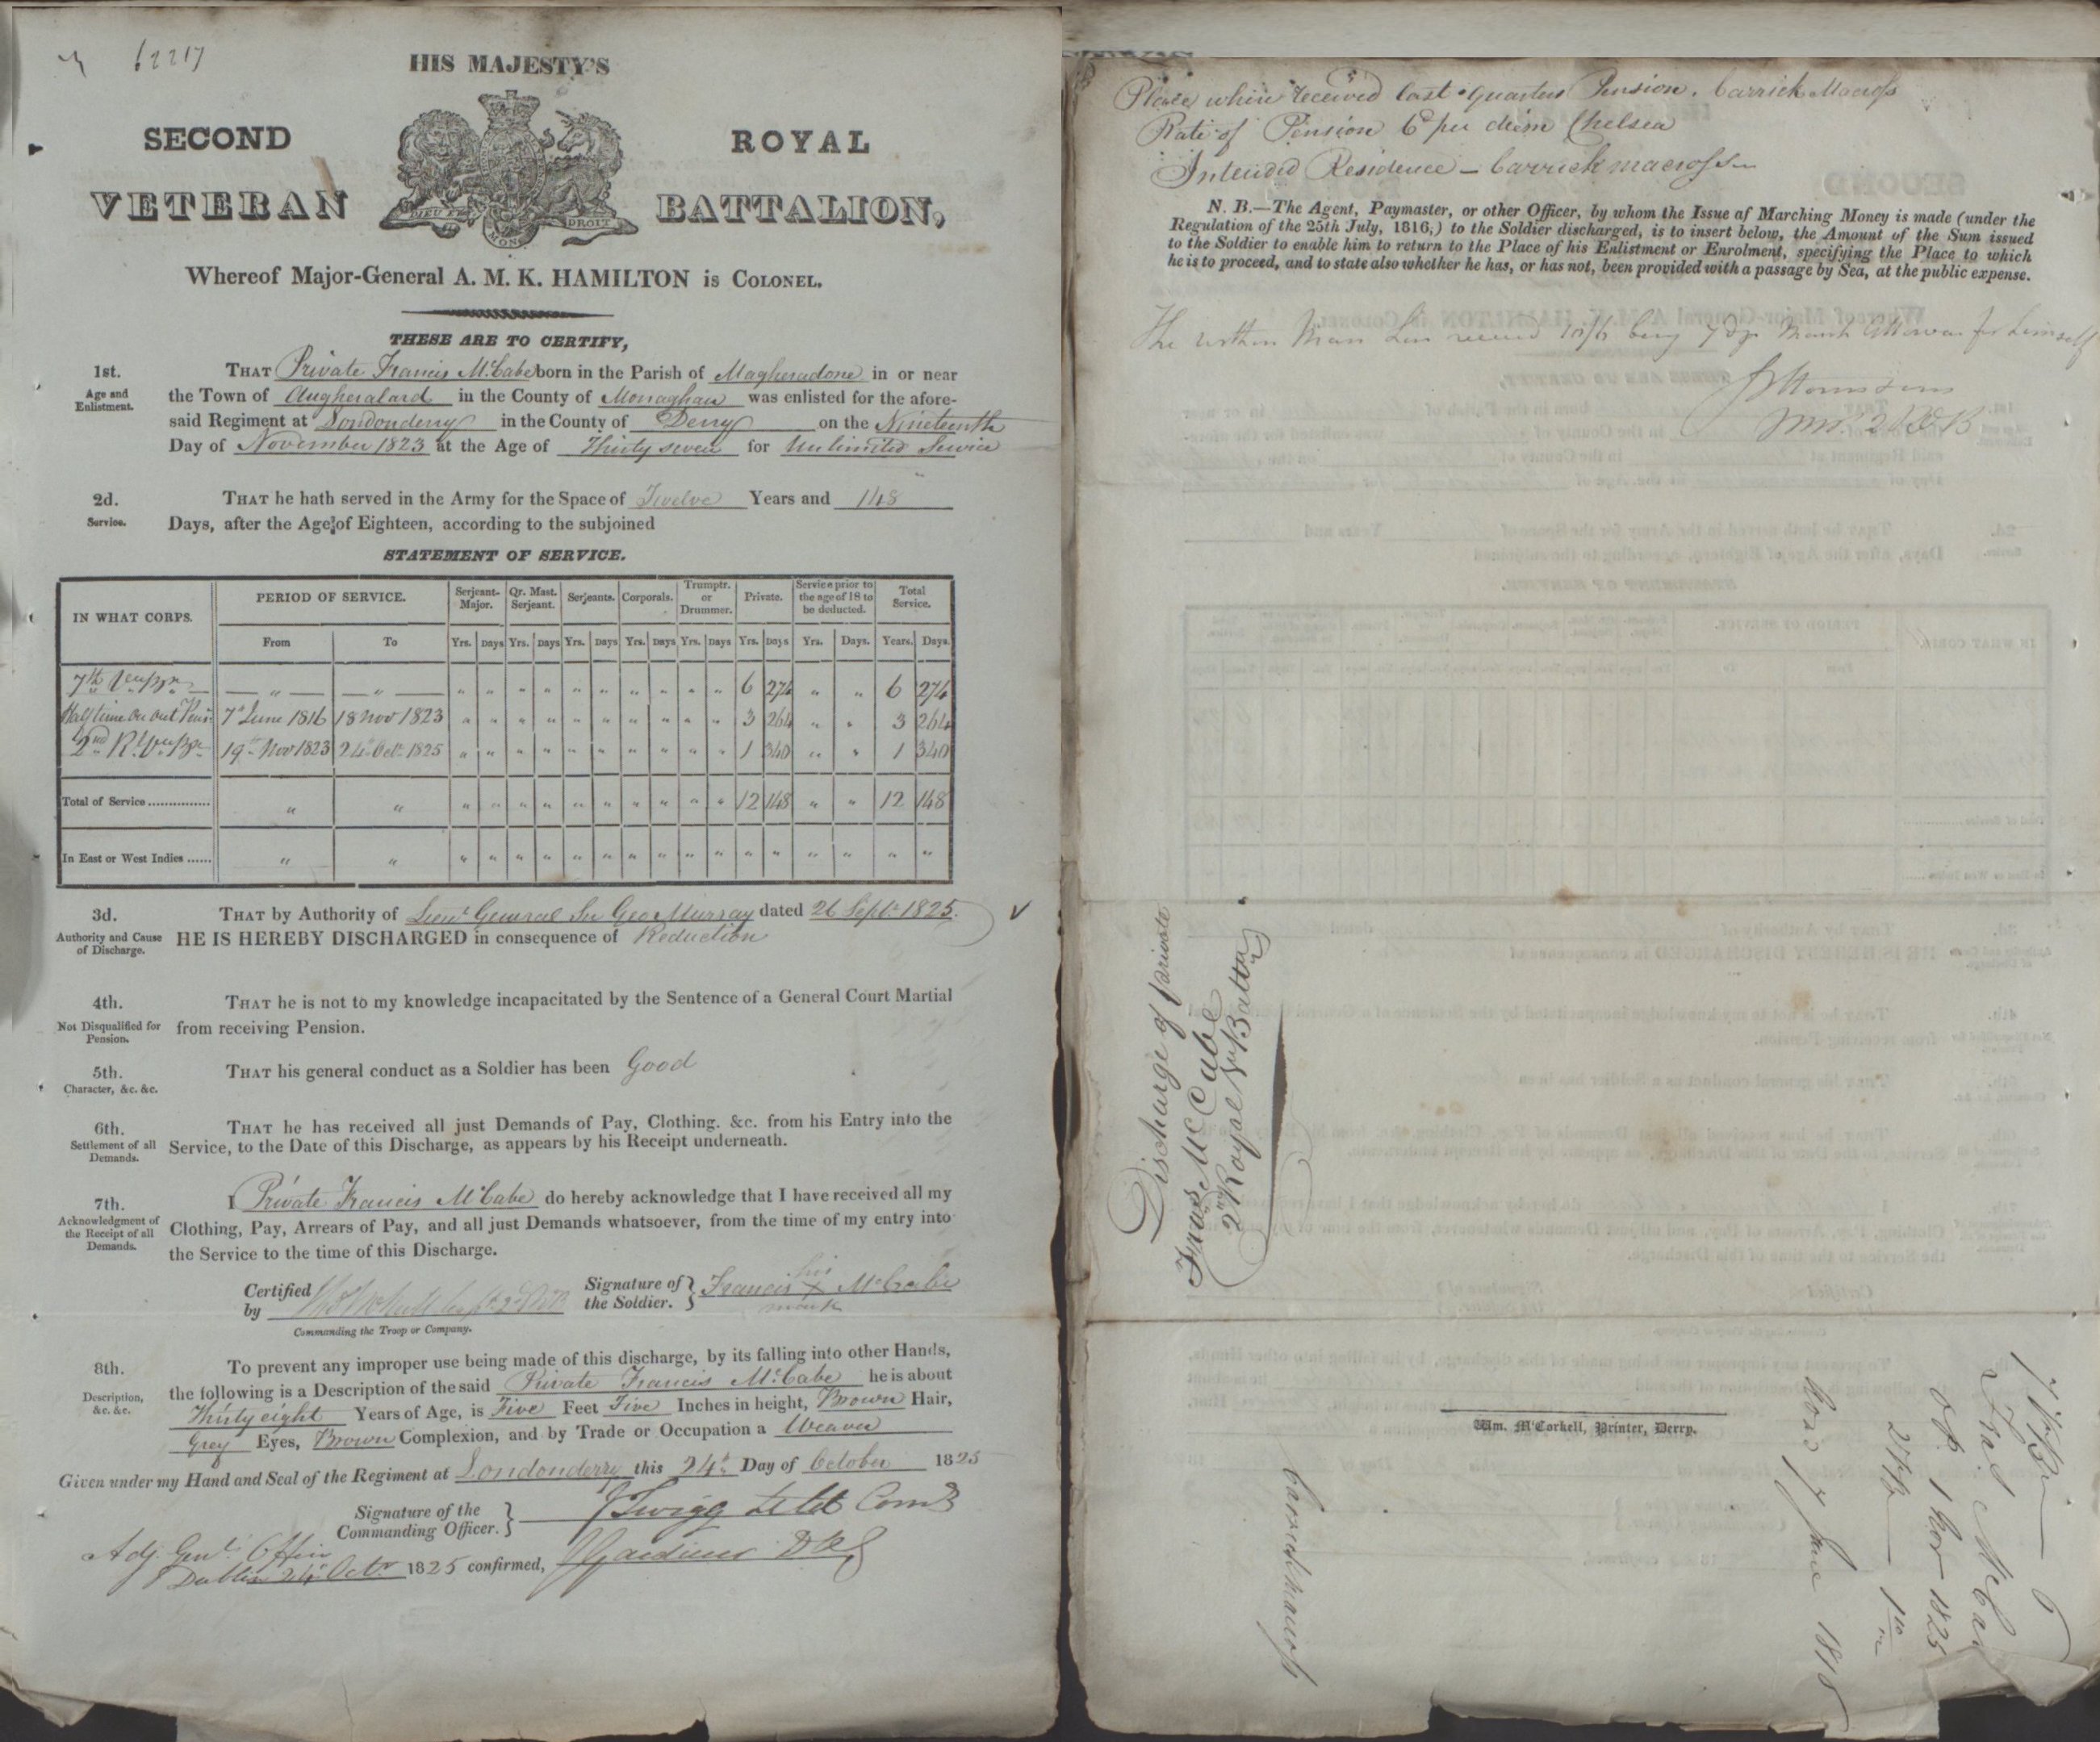 62217
HIS MAJESTY'S
SECOND ROYAL
VETERAN BATTALION,
DIEU ET MON DROIT
Whereof Major-General A. M. K. HAMILTON is COLONEL.
THESE ARE TO CERTIFY,
1st. Age and Enlistment.
THAT Private Francis McCabe born in the Parish of Magheradone in or near
the Town of Augheralard in the County of Monaghan was enlisted for the afore-
said Regiment at Londonderry in the County of Derry on the Nineteenth
Day of November 1823 at the Age of Thirty seven for Unlimited Service
2d. Service.
THAT he hath served in the Army for the Space of Twelve Years and 148
Days, after the Age of Eighteen, according to the subjoined
STATEMENT OF SERVICE.
IN WHAT CORPS. PERIOD OF SERVICE. Serjeant-Major. Qr. Mast. Serjeant. Serjeants. Corporals. Trumptr. or Drummer. Private. Service prior to the age of 18 to be deducted. Total Service.
From To Yrs. Days Yrs. Days Yrs. Days Yrs. Days Yrs. Days Yrs. Days Yrs. Days. Years. Days.
7th Vn Bn — " — — " — " " " " " " " " " " 6 274 " " 6 274
Half time on out Pens. 7th June 1816 18 Nov 1823 " " " " " " " " " " 3 264 " " 3 264
2nd R. Vn Bn 19th Nov 1823 24th Octr 1825 " " " " " " " " " " 1 340 " " 1 340
Total of Service ............... " " " " " " " " " " " " 12 148 " " 12 148
In East or West Indies ...... " " " " " " " " " " " " " " " " " "
3d. Authority and Cause of Discharge.
THAT by Authority of Lieut General Sir Geo Murray dated 26 Septr 1825.
HE IS HEREBY DISCHARGED in consequence of Reduction
4th. Not Disqualified for Pension.
THAT he is not to my knowledge incapacitated by the Sentence of a General Court Martial
from receiving Pension.
5th. Character, &c. &c.
THAT his general conduct as a Soldier has been Good
6th. Settlement of all Demands.
THAT he has received all just Demands of Pay, Clothing. &c. from his Entry into the
Service, to the Date of this Discharge, as appears by his Receipt underneath.
7th. Acknowledgment of the Receipt of all Demands.
I Private Francis McCabe do hereby acknowledge that I have received all my
Clothing, Pay, Arrears of Pay, and all just Demands whatsoever, from the time of my entry into
the Service to the time of this Discharge.
Certified by
Commanding the Troop or Company.
Signature of the Soldier. } Francis his X mark McCabe
8th. Description, &c. &c.
To prevent any improper use being made of this discharge, by its falling into other Hands,
the following is a Description of the said Private Francis McCabe he is about
Thirty eight Years of Age, is Five Feet Five Inches in height, Brown Hair,
Grey Eyes, Brown Complexion, and by Trade or Occupation a Weaver
Given under my Hand and Seal of the Regiment at Londonderry this 24th Day of October 1825
Signature of the Commanding Officer. } Twigg Lt Col Comd
Adj. Genl. Office
Dublin 24 Octr 1825 confirmed, Gardiner DAG
Place where received last Quarters Pension. Carrick Macross
Rate of Pension 6d per diem Chelsea
Intended Residence - Carrickmacross
N. B.—The Agent, Paymaster, or other Officer, by whom the Issue af Marching Money is made (under the
Regulation of the 25th July, 1816,) to the Soldier discharged, is to insert below, the Amount of the Sum issued
to the Soldier to enable him to return to the Place of his Enlistment or Enrolment, specifying the Place to which
he is to proceed, and to state also whether he has, or has not, been provided with a passage by Sea, at the public expense.
The within Man has received 10/6 being 7 days March Allowance for himself
Discharge of Private
Frans McCabe
2nd Royal V. Battn
Wm. M'Corkell, Printer, Derry.
7 V Bn 6
Fras McCabe
1 Nov 1825
2 V Bn
17 June 1816
Carrickmacross